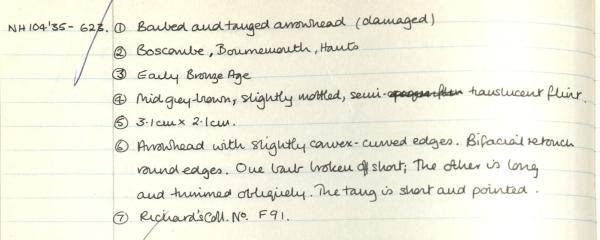 NH104'35-623. ① Barbed and tanged arrowhead (damaged)
② Boscombe, Bournemouth, Hants
③ Early Bronze Age
④ Mid grey-brown, slightly mottled, semi- translucent flint.
⑤ 3.1cm x 2.1cm.
⑥ Arrowhead with slightly convex-curved edges. Bifacial retouch
round edges. One barb broken off short; The other is long
and trimmed obliquely. The tang is short and pointed.
⑦ Richard's Coll. No. F91.